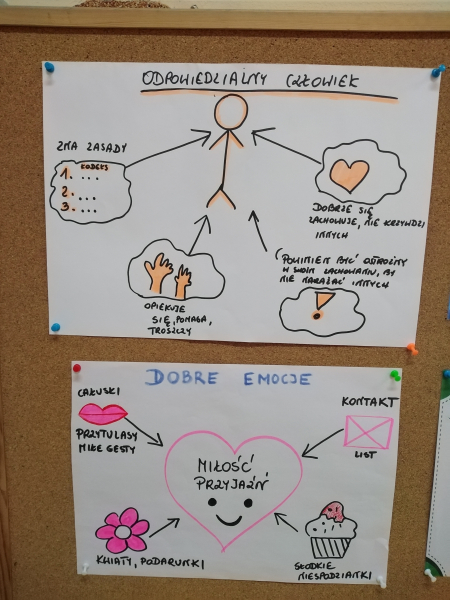 ODPOWIEDZIALNY CZŁOWIEK
ZNA ZASADY
KODEKS
1. ...
2. ...
3. ...
DOBRZE SIĘ
ZACHOWUJE, NIE KRZYWDZI
INNYCH
OPIEKUJE
SIĘ, POMAGA,
TROSZCZY
POWINIEN BYĆ OSTROŻNY
W SWOIM ZACHOWANIU, BY
NIE NARAŻAĆ INNYCH
!
DOBRE EMOCJE
CAŁUSKI
PRZYTULASY
MIŁE GESTY
KONTAKT
LIST
MIŁOŚĆ
PRZYJAŹŃ
KWIATY, PODARUNKI
SŁODKIE
NIESPODZIANKI